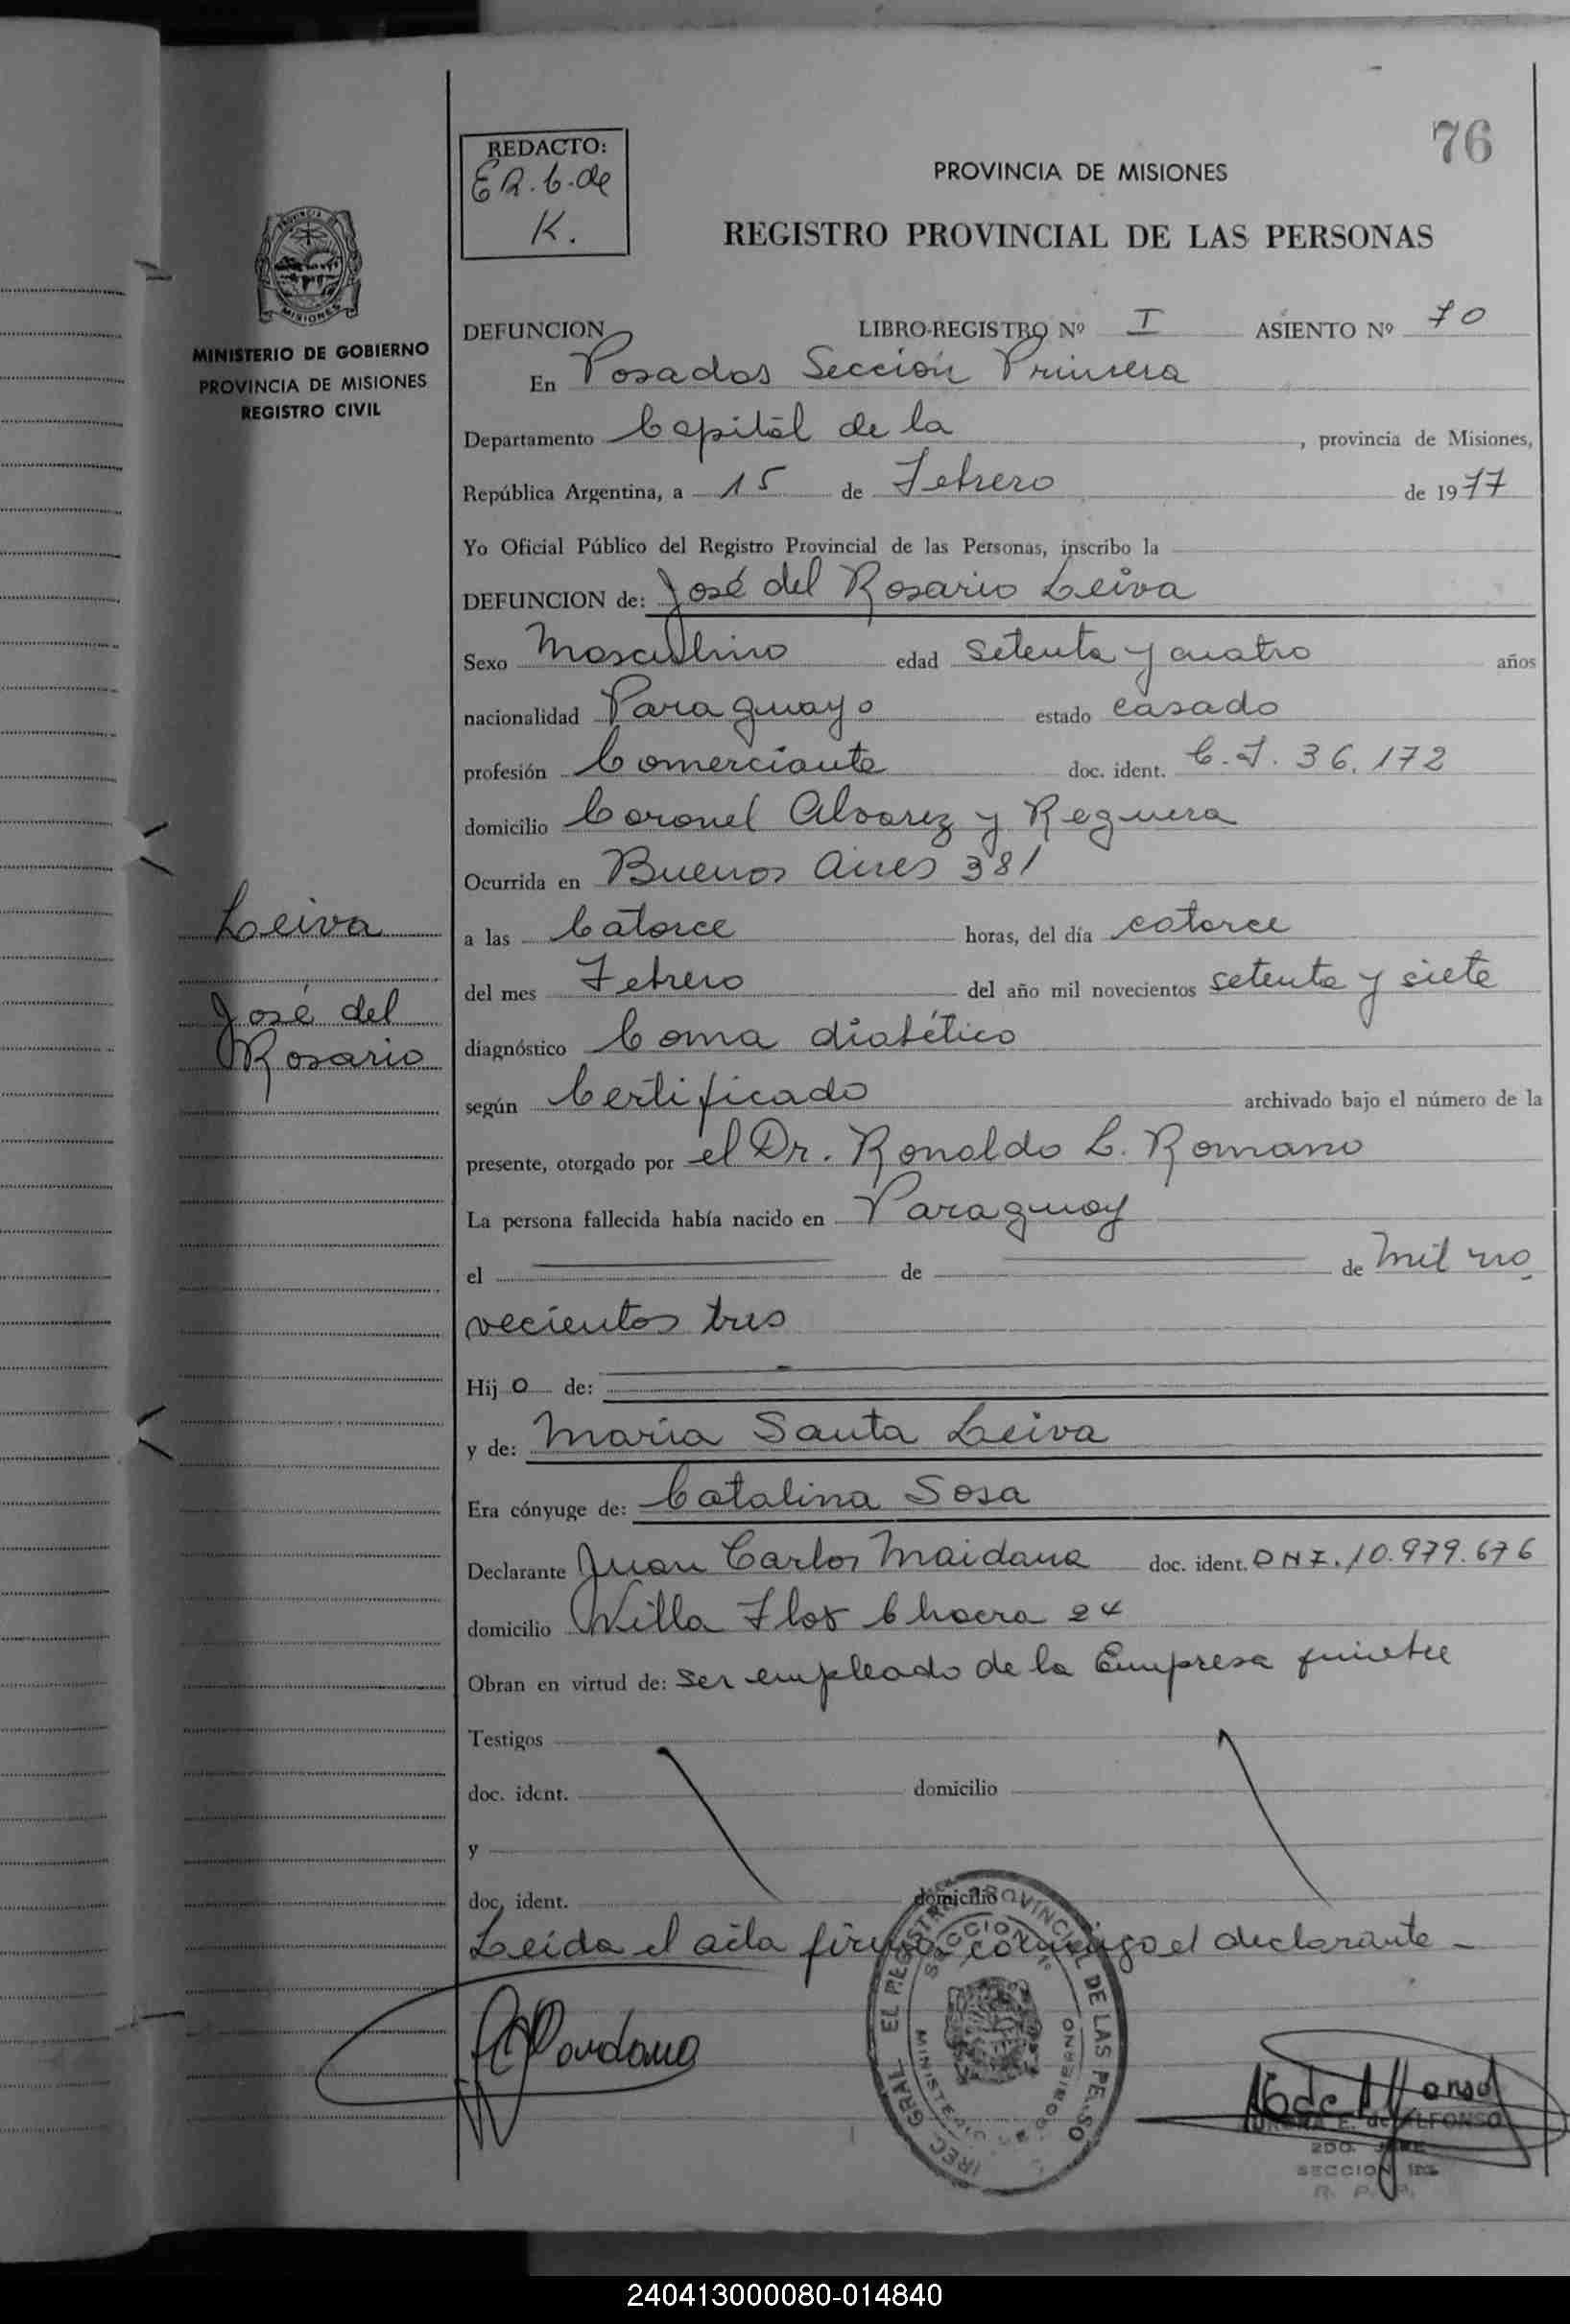 76
REDACTO:
E R. C. de
K.
PROVINCIA DE MISIONES
REGISTRO PROVINCIAL DE LAS PERSONAS
MISIONES
MINISTERIO DE GOBIERNO
PROVINCIA DE MISIONES
REGISTRO CIVIL
DEFUNCION LIBRO-REGISTRO Nº I ASIENTO Nº 70
En Posadas Sección Primera
Departamento Capital de la , provincia de Misiones,
República Argentina, a 15 de Febrero de 1977
Yo Oficial Público del Registro Provincial de las Personas, inscribo la
DEFUNCION de: José del Rosario Leiva
Sexo Masculino edad setenta y cuatro años
nacionalidad Paraguayo estado casado
profesión Comerciante doc. ident. C.I. 36.172
domicilio Coronel Alvarez y Reguera
Ocurrida en Buenos Aires 381
Leiva
a las Catorce horas, del día catorce
del mes Febrero del año mil novecientos setenta y siete
José del
Rosario
diagnóstico Coma diabético
según Certificado archivado bajo el número de la
presente, otorgado por el Dr. Ronaldo L. Romano
La persona fallecida había nacido en Paraguay
el de de mil no
vecientos tres
Hijo de:
y de: María Santa Leiva
Era cónyuge de: Catalina Sosa
Declarante Juan Carlos Maidana doc. ident. DNI. 10.979.676
domicilio Villa Flor Chacra 24
Obran en virtud de: ser empleado de la Empresa funebre
Testigos
doc. ident. domicilio
y
doc. ident. domicilio
Leída el acta firma conmigo el declarante -
SECCION 1º
MINISTERIO DE GOBIERNO
AURORA E. de ALFONSO
2DO. JEFE
SECCION 1ra.
R. P. P.
240413000080-014840